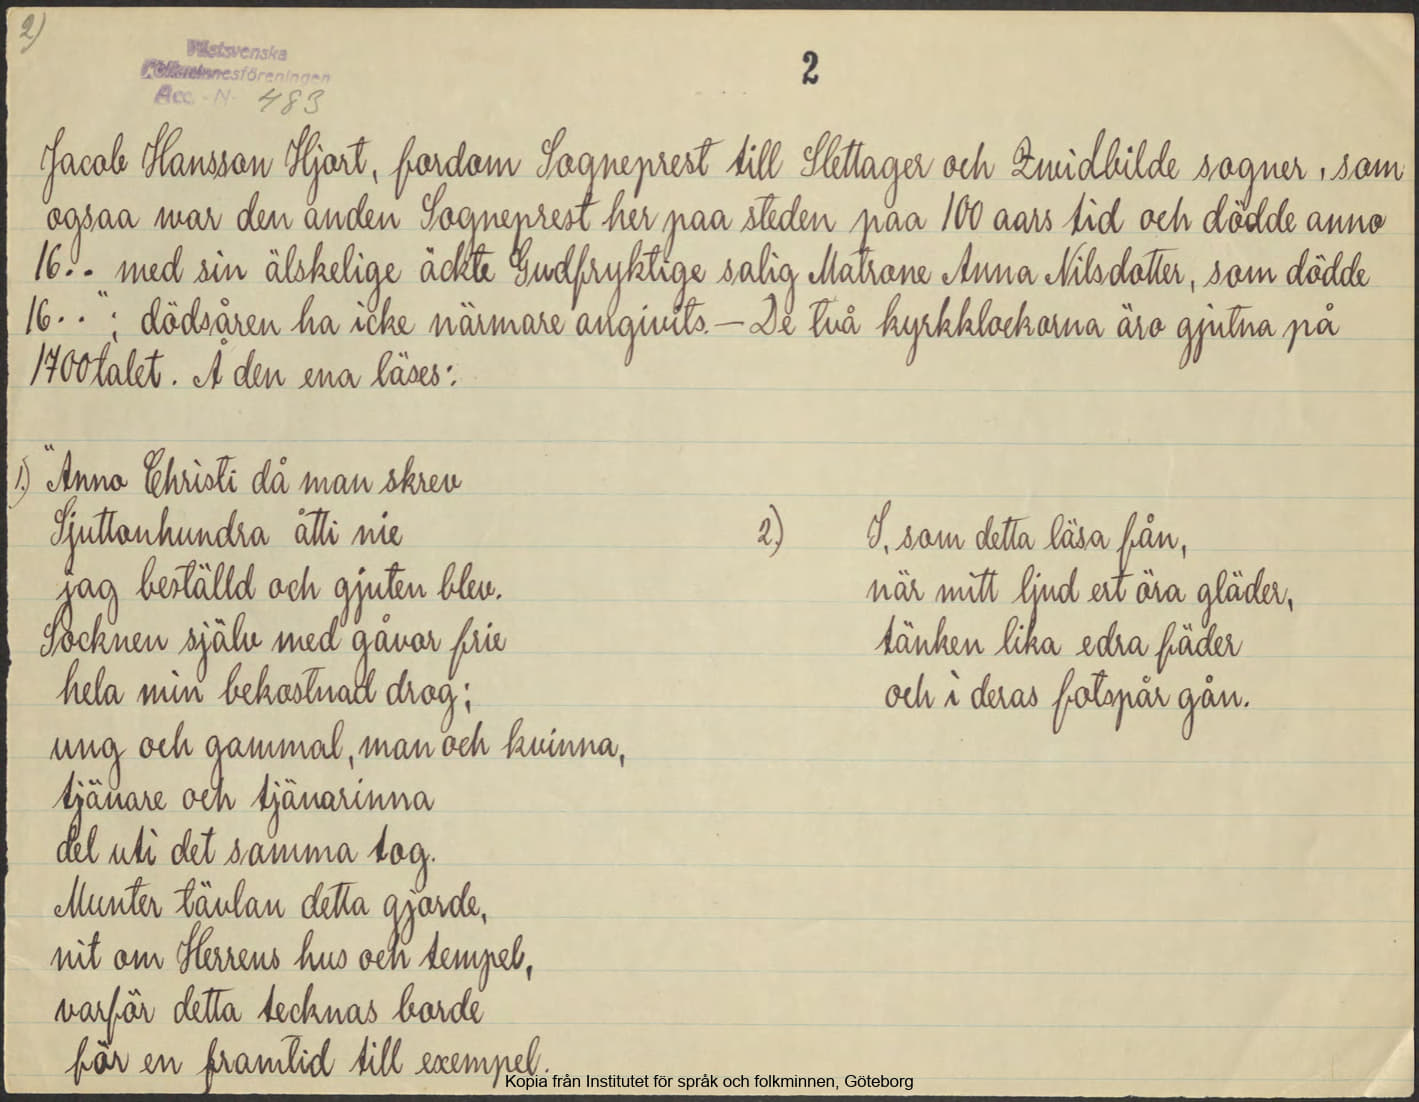 2)
Västsvenska
Folkminnesföreningen
Acc. - N- 483
2
Jacob Hansson Hjort, fordom Sogneprest till Slettager och Qwidbilde sogner, som
ogsaa war den anden Sogneprest her paa steden paa 100 aars tid och dödde anno
16.. med sin älskelige äckte Gudfryktige salig Matrone Anna Nilsdotter, som dödde
16.."; dödsåren ha icke närmare angivits. — De två kyrkklockorna äro gjutna på
1700talet. Å den ena läses:
1.) "Anno Christi då man skrev
Sjuttonhundra åtti nie
jag beställd och gjuten blev.
Socknen själv med gåvor frie
hela min bekostnad drog;
ung och gammal, man och kvinna,
tjänare och tjänarinna
del uti det samma tog.
Munter tävlan detta gjorde,
nit om Herrens hus och tempel,
varför detta tecknas borde
för en framtid till exempel.
2.) I, som detta läsa fån,
när mitt ljud ert öra gläder,
tänken lika edra fäder
och i deras fotspår gån.
Kopia från Institutet för språk och folkminnen, Göteborg